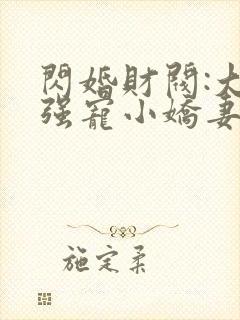 閃婚財閥:大
强寵小嬌妻
施定柔